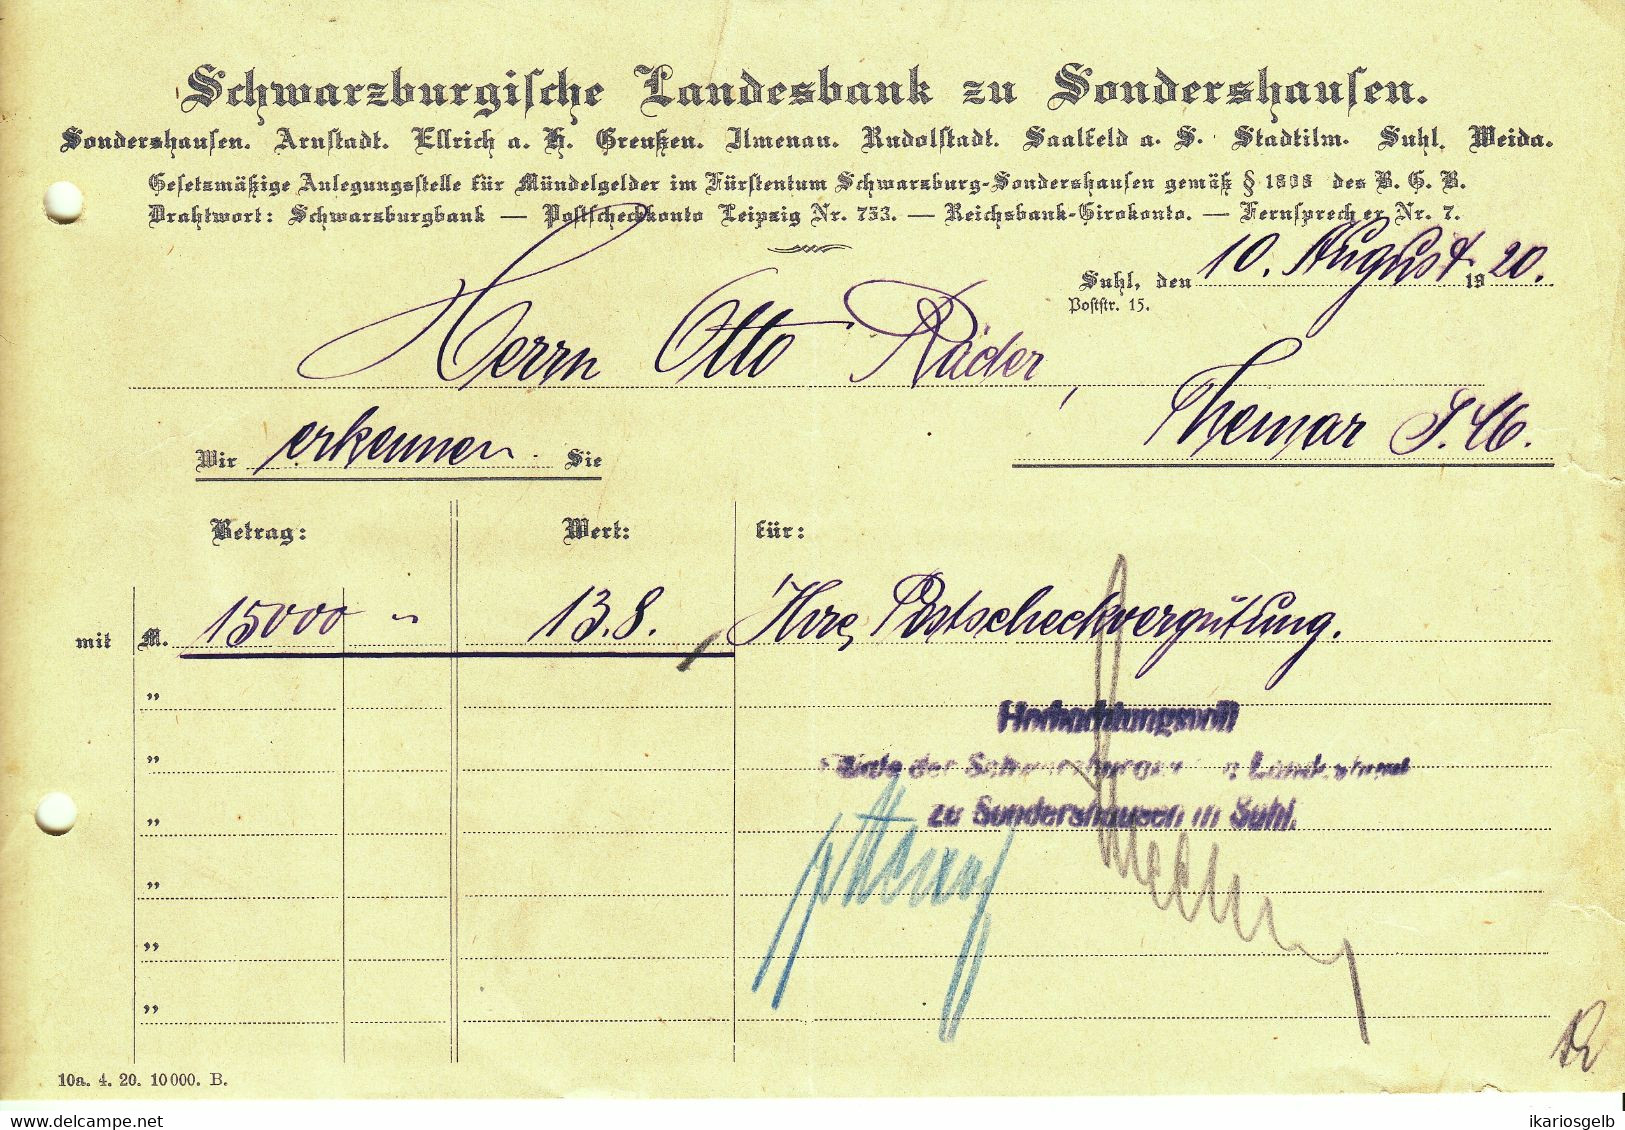 Schwarzburgische Landesbank zu Sondershausen.
Sondershausen. Arnstadt. Ellrich a. H. Greußen. Ilmenau. Rudolstadt. Saalfeld a. S. Stadtilm. Suhl. Weida.
Gesetzmäßige Anlegungsstelle für Mündelgelder im Fürstentum Schwarzburg-Sondershausen gemäß § 1808 des B. G. B.
Drahtwort: Schwarzburgbank — Postscheckkonto Leipzig Nr. 733. — Reichsbank-Girokonto. — Fernsprecher Nr. 7.
Suhl, den 10. August 1920.
Poststr. 15.
Herrn Otto Räder,
Themar S. M.
Wir erkennen Sie
Betrag: Wert: für:
mit M. 15000 - 13.8. Ihre Postscheckvergütung.
"
Hochachtungsvoll
"
Filiale der Schwarzburgischen Landesbank
"
zu Sondershausen in Suhl.
"
"
"
10a. 4. 20. 10000. B.
www.delcampe.net
ikariosgelb